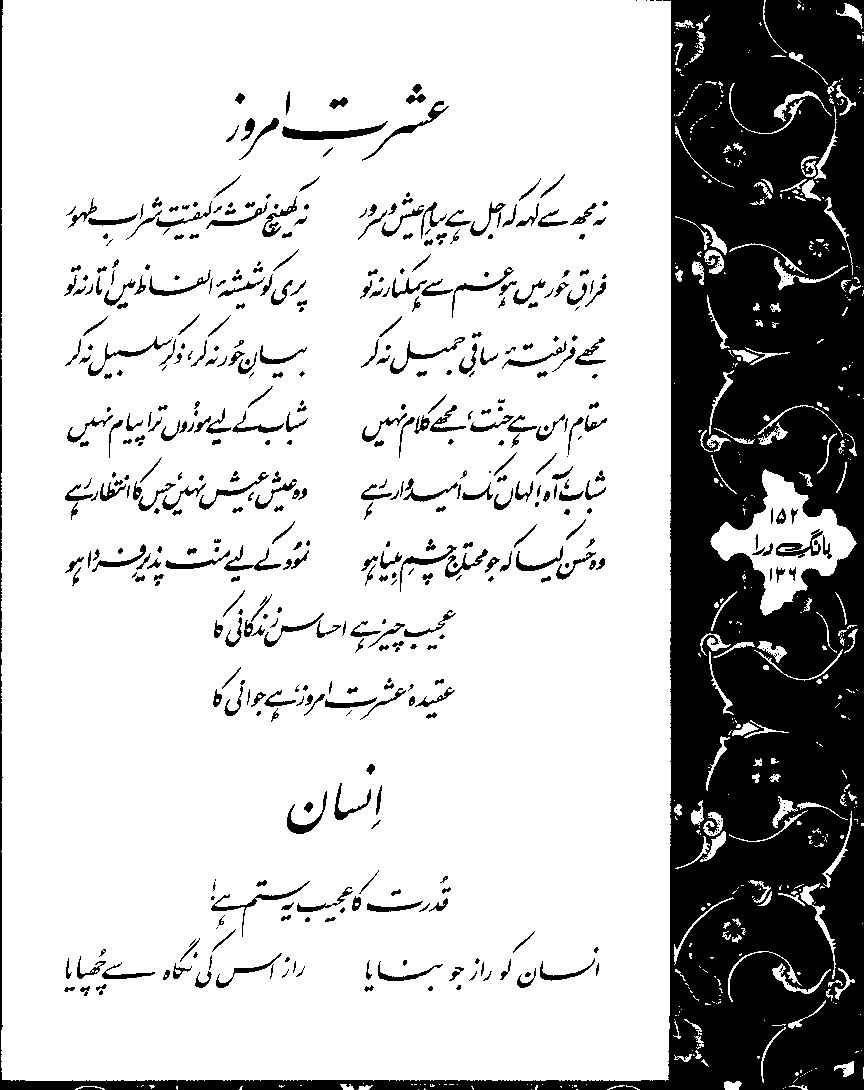 عشرتِ امروز
نہ مجھ سے کہہ کہ اجل ہے پیامِ عیش و سرور نہ کھینچ نقشۂ کیفیّتِ شرابِ طہور
فراقِ حُور میں ہو غم سے ہمکنار نہ تو پری کو شیشۂ الفاظ میں اُتار نہ تو
مجھے فریفتۂ ساقیِ جمیل نہ کر بیانِ حُور نہ کر، ذکرِ سلسبیل نہ کر
مقامِ امن ہے جنّت، مجھے کلام نہیں شباب کے لیے موزُوں ترا پیام نہیں
شباب، آہ! کہاں تک اُمیدوار رہے وہ عیش، عیش نہیں، جس کا انتظار رہے
وہ حُسن کیسا کہ جو محتاجِ چشمِ بِینا ہو نمُود کے لیے منّت پذیرِ فردا ہو
عجیب چیز ہے احساس زندگانی کا
عقیدہ 'عشرتِ امروز' ہے جوانی کا
اِنسان
قُدرت کا عجیب یہ ستم ہے!
انسان کو راز جو بنایا راز اس کی نگاہ سے چُھپایا
۱۵۲
بانگِ درا
۱۳۶